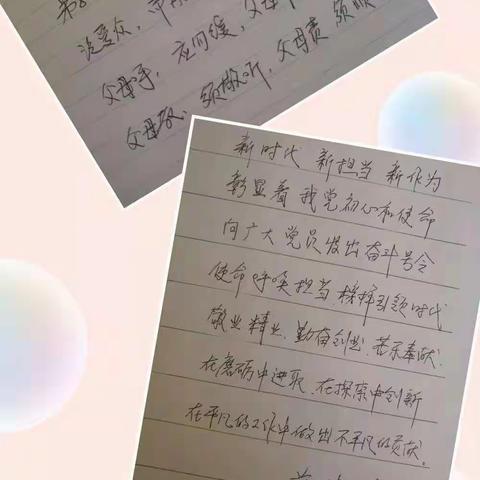 泛爱众,
父母呼, 应勿缓, 父母
父母教, 须敬听, 父母责 须顺
新时代 新担当 新作为
彰显着 我党初心和使命
向广大党员发出奋斗号令
使命呼唤担当 榜样引领时代
敬业精业、勤奋创业 苦乐奉献.
在磨砺中进取、在探索中创新
在平凡的工作中做出不平凡的贡献.